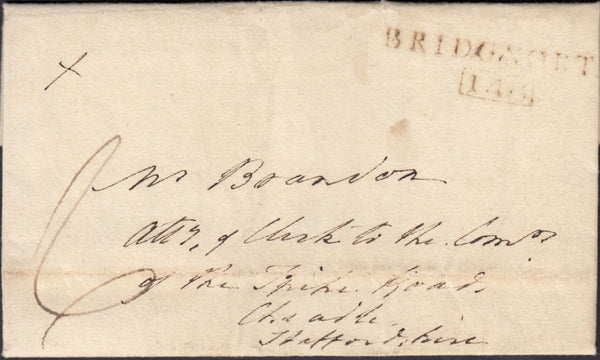 BRIDGNORT
148
x
6
Mr Brandon
Atty, & Clerk to the Comrs
of the Road
Cheadle
Staffordshire